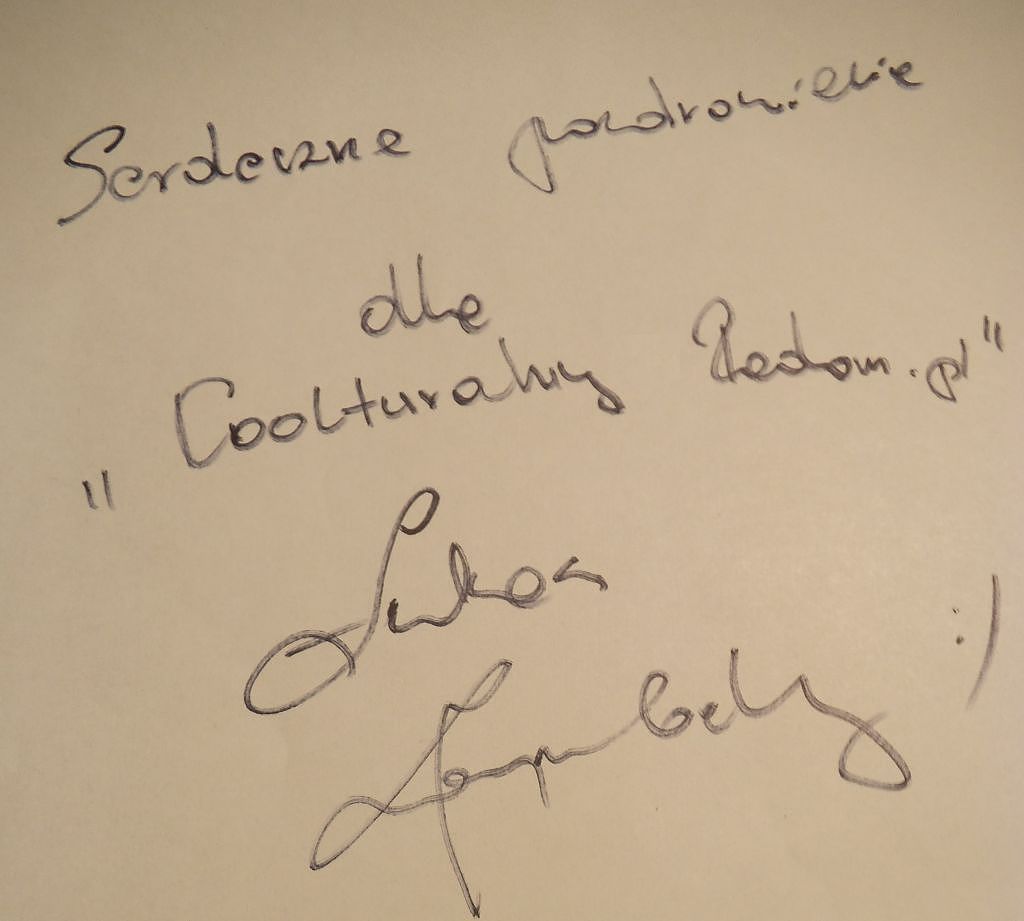 Serdeczne pozdrowienia
dla
„Coolturalny Radom.pl"
Lukas
:)